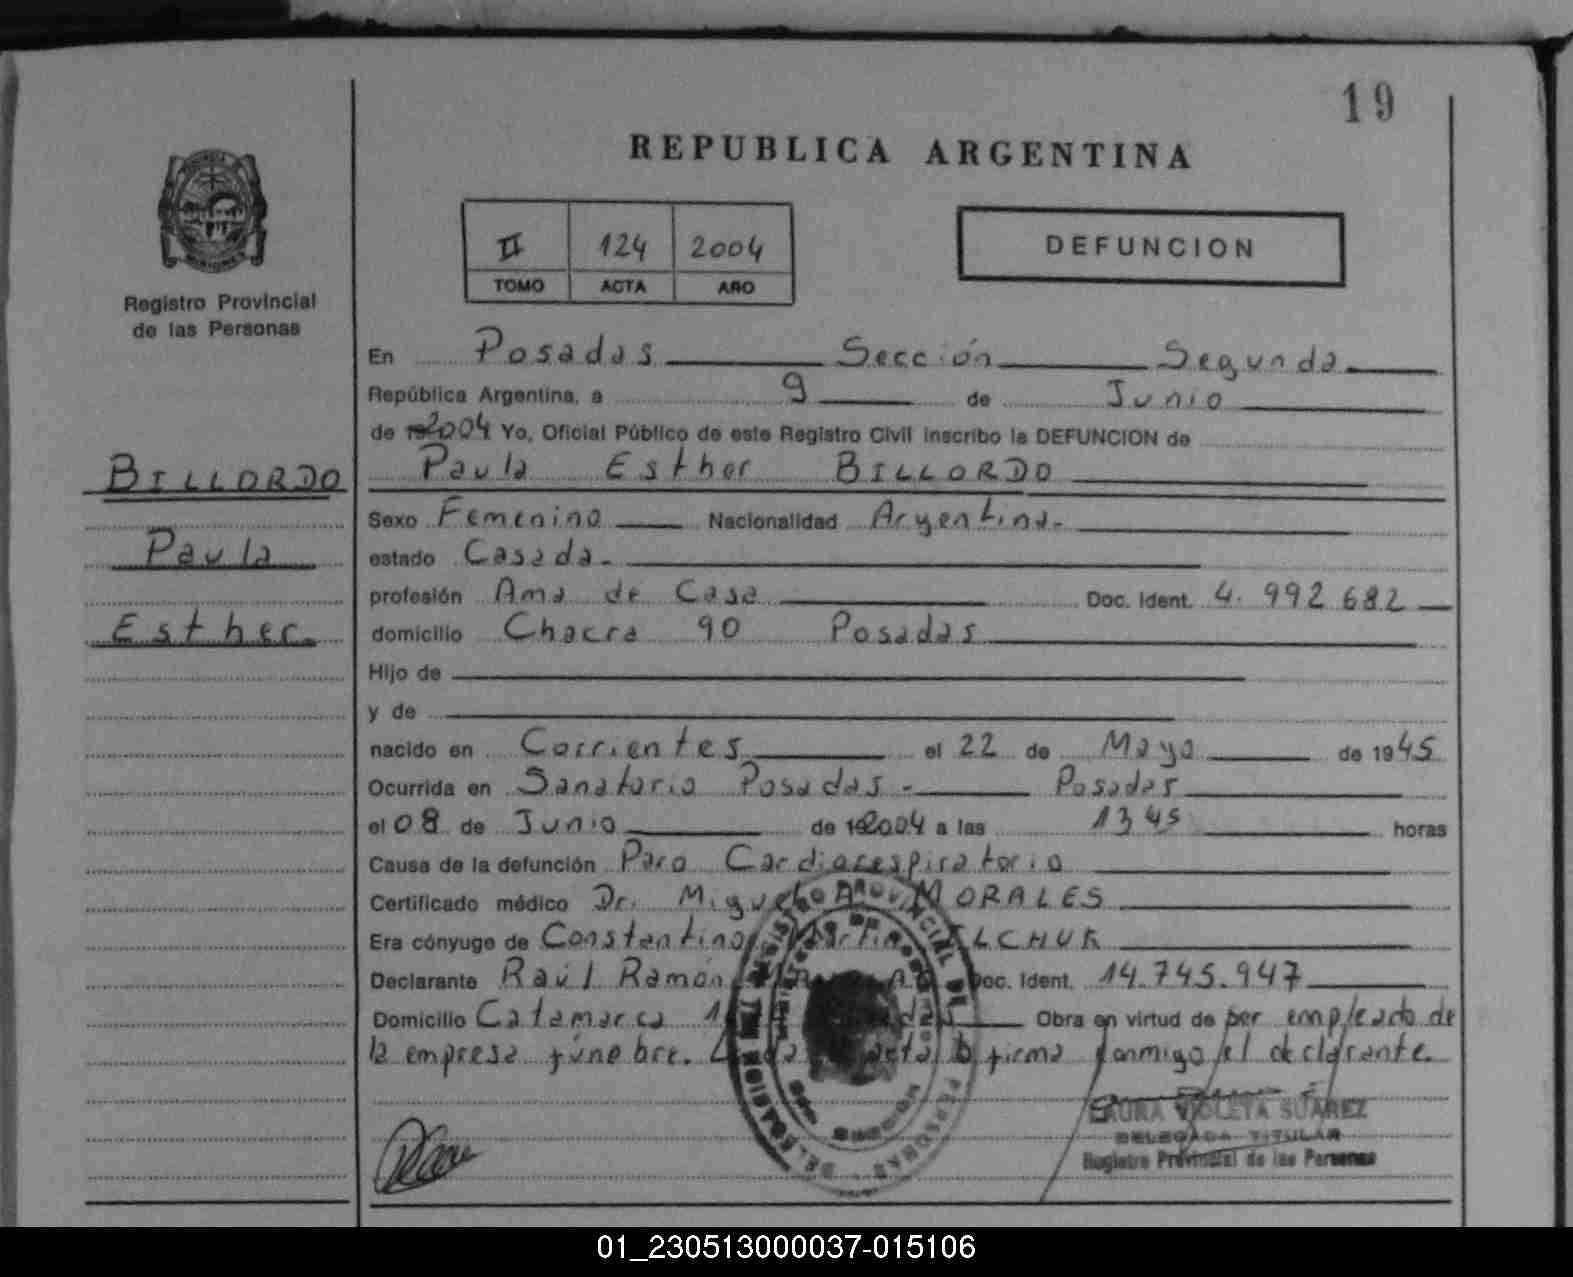 19
REPUBLICA ARGENTINA
II 124 2004
TOMO ACTA AÑO
DEFUNCION
Registro Provincial
de las Personas
BILLORDO
Paula
Esther.
En Posadas Sección Segunda
República Argentina, a 9 de Junio
de 2004 Yo, Oficial Público de este Registro Civil inscribo la DEFUNCION de
Paula Esther BILLORDO
Sexo Femenino Nacionalidad Argentina.
estado Casada.
profesión Ama de Casa Doc. Ident. 4.992.682
domicilio Chacra 90 Posadas
Hijo de
y de
nacido en Corrientes el 22 de Mayo de 1945
Ocurrida en Sanatorio Posadas - Posadas
el 08 de Junio de 2004 a las 13 45 horas
Causa de la defunción Paro Cardiorespiratorio
Certificado médico Dr. Miguel A. MORALES
Era cónyuge de Constantino Martin
Declarante Raúl Ramón Doc. Ident. 14.745.947
Domicilio Catamarca Obra en virtud de per empleado de
la empresa fúnebre. acta la firma conmigo el declarante.
REGISTRO PROVINCIAL DE PERSONAS
LAURA VIOLETA SUAREZ
DELEGADA TITULAR
Registro Provincial de las Personas
01_230513000037-015106